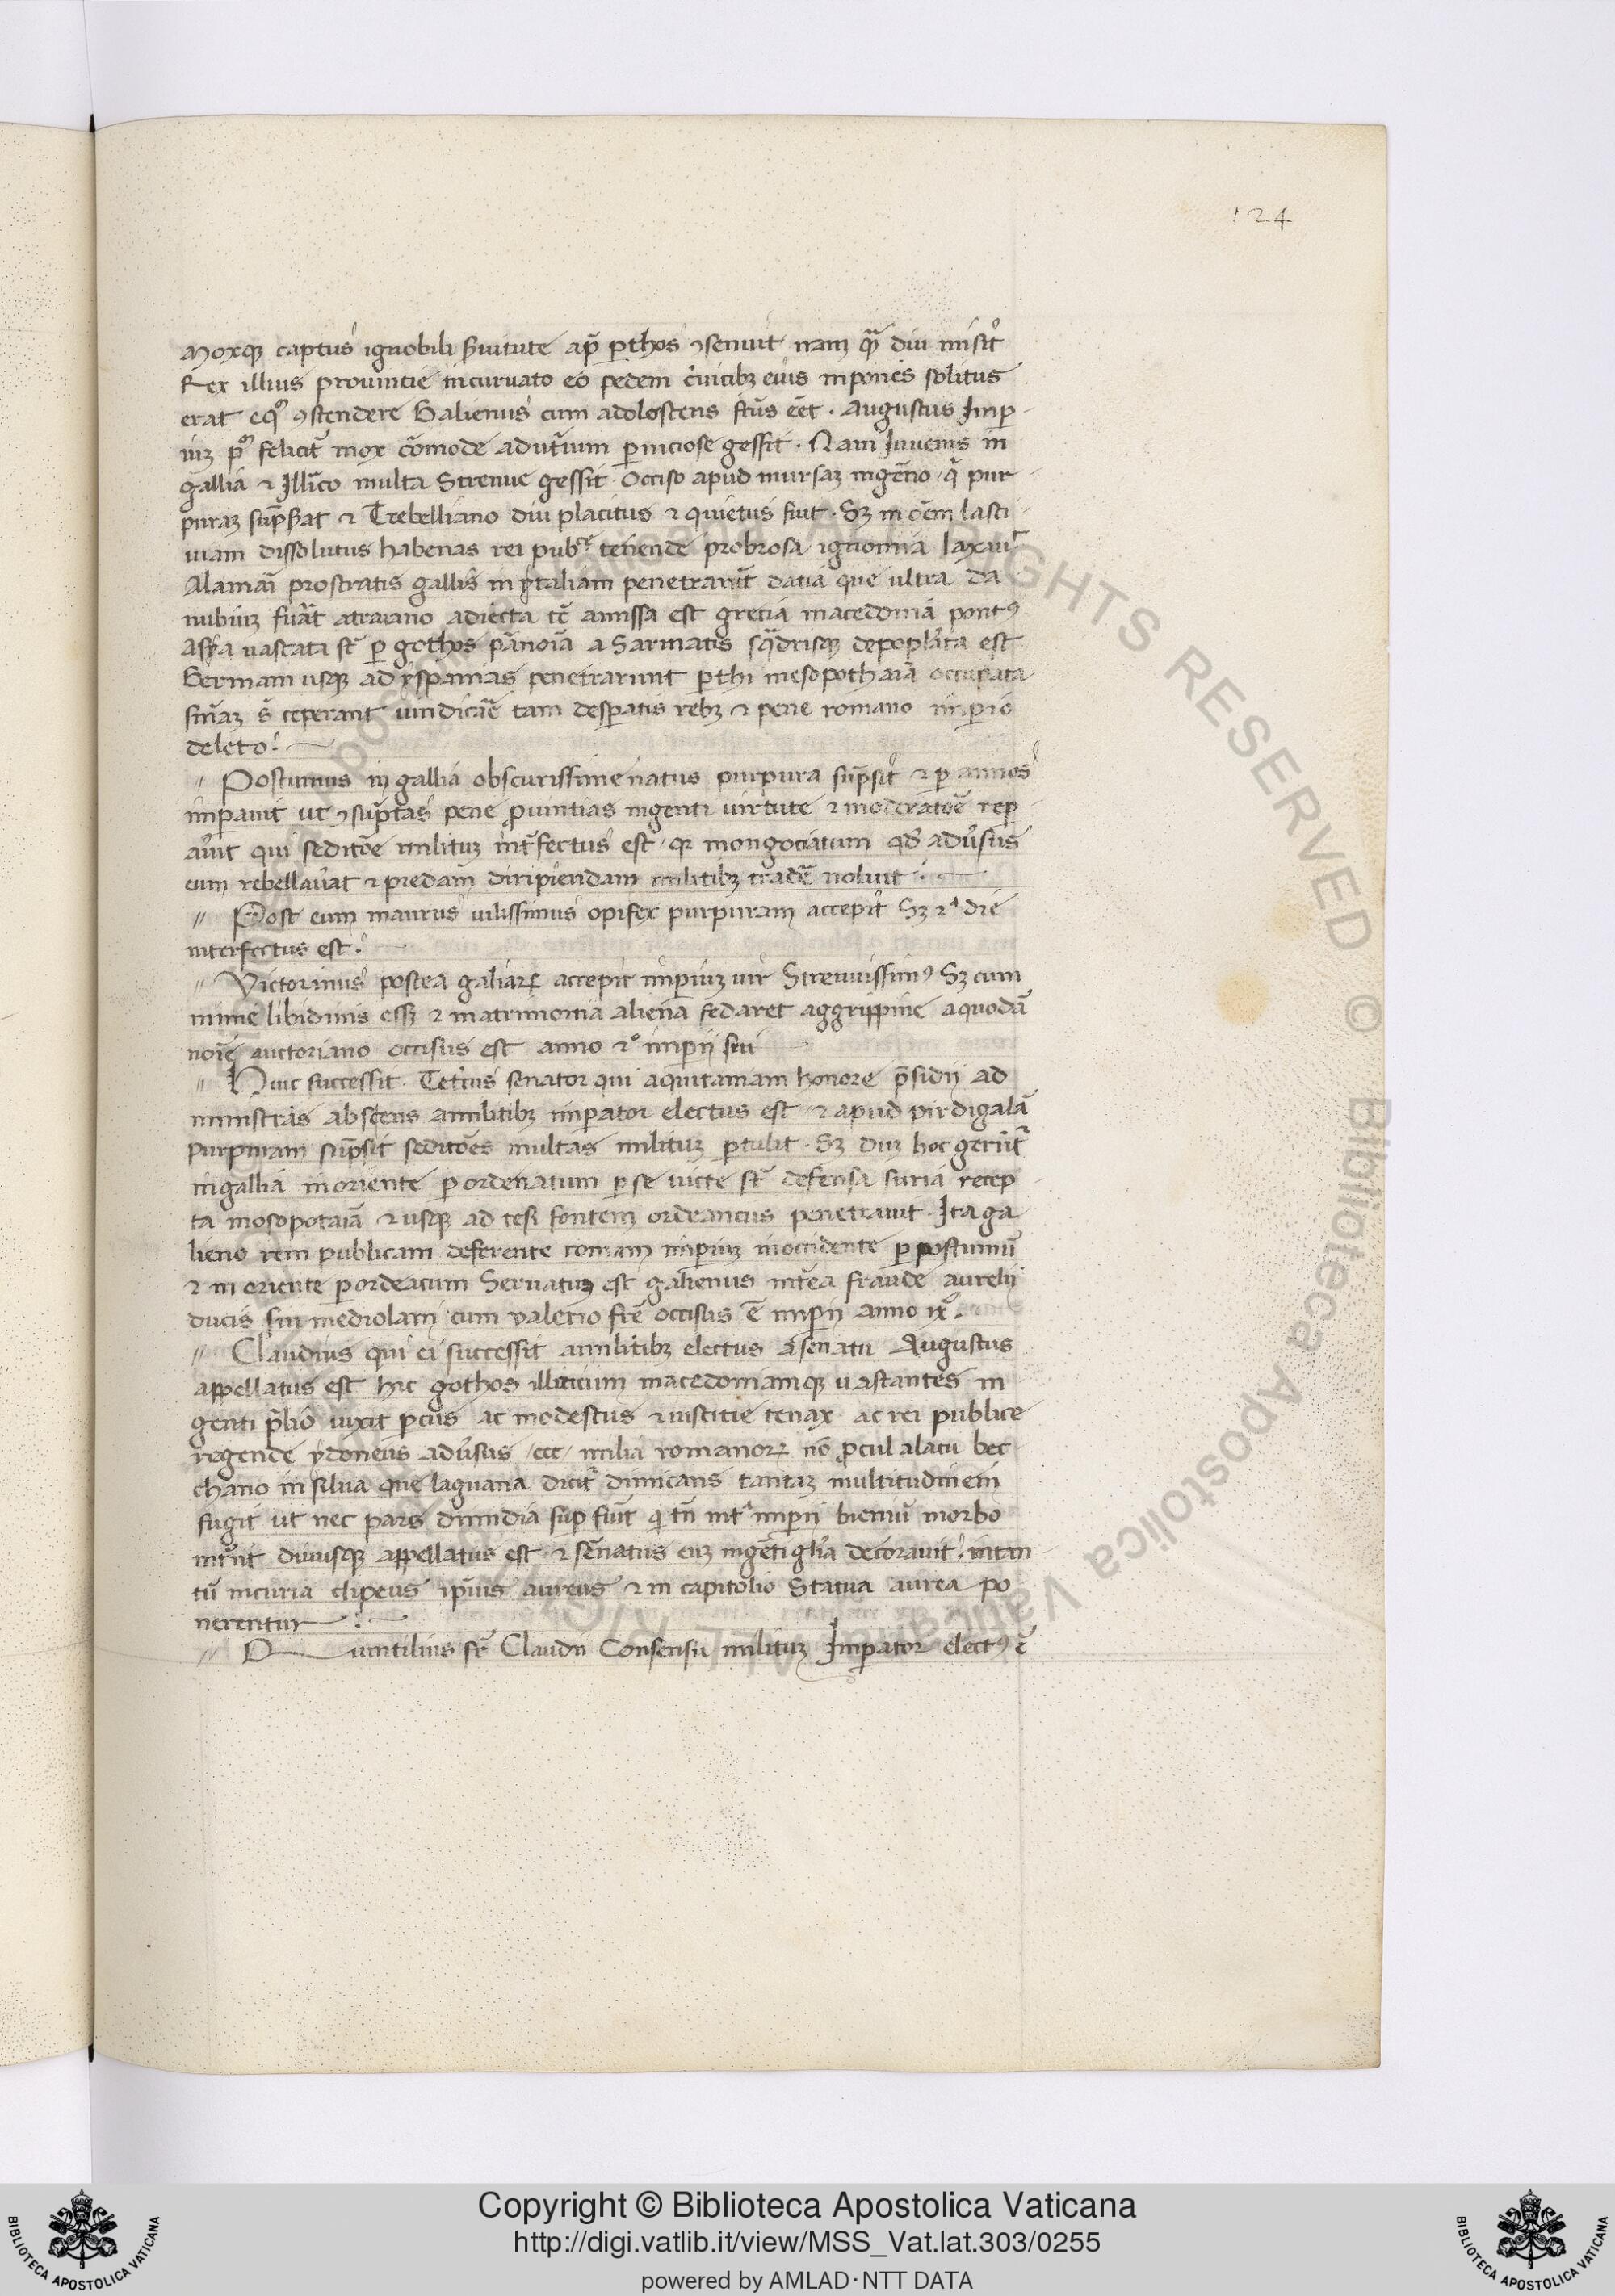 124
Moxqꝫ captus ignobili s̄vitute ap̄ ꝑthos ꝯsenuit nam qͣ̄ diu vixit
Rex illius provintie incurvato eo pedem c̄vicibꝫ eius inponēs solitus
erat eqͦ ꝯscendere Galienus cum adolescens fc̄s ēēt . Augustus Imp̄
iuꝫ pͦ felicit̄ mox cōmode adult̄ium ꝑniciose gessit . Nam Iuvenis in
gallia ⁊ Illīco multa Strenue gessit . Occiso apud mursaꝫ ingēuo q̄ pur
puraꝫ sūpſ̄at ⁊ Trebelliano diu placitus ⁊ quietus fuit . Sꝫ in oēm lasci
viam dissolutus habenas rei pubᶜᵉ tenende probrosa ignomia laxavᵗ
Alamāi prostratis gallis in ytaliam penetrarūt datia que ultra da
nubiuꝫ fuāt atraiano adiecta tc̄ amissa est gretia macedonia pontꝰ
Asya vastata st̄ ꝑ gothos pānoīa a Sarmatis sqͣdrisqꝫ depoplata est
Germani usqꝫ ad yspanias penetrarunt ꝑthi mesopothaīa occupata
siriaꝫ s̄ ceperant vindicār̄ tam desꝑatis rebꝫ ⁊ pene romano imꝑio
deleto .
// Postumus in gallia obscurissime natus purpura sūpsit ⁊ ꝑ annos
imꝑavit ut ꝯsūptas pene ꝓvintias ingenti virtute ⁊ moderatōe reꝑ
av̄it qui seditōe militiꝫ int̄fectus est qꝛ mongociatum qd̄ adv̄sus
eum rebellav̄at ⁊ predam diripiendam militibꝫ tradē noluit .
// Post eum maurus vilissimus opifex purpuram accepit Sꝫ 2ᵃ die
interfectus est .
// Victorinus postea galiaꝝ accepit imꝑiuꝫ vir Strenuissimꝰ Sꝫ cum
nimie libidinis esset ⁊ matrimonia aliena fedaret aggrippine aquodā
noīe auctoriano occisus est anno 2ͦ imꝑii sui
// Huic successit . Tetricus senator qui aquitaniam honore p̄sidii ad
ministrās abscens amilitibꝫ imꝑator electus est ⁊ apud pirdigalā
purpuram sūpsit seditōes multas militiꝫ ꝑtulit . Sꝫ duꝫ hoc gerūtᷣ
ingallia inoriente ꝑ ordenatum ꝑse victe st̄ defensa suria recep
ta mosopotaīa ⁊ usqꝫ ad tesi fontem ordeancus penetravit . Ita ga
lieno rem publicam deferente romanum imꝑiuꝫ inoccidente ꝑ postumū
⁊ in oriente ꝑ ordeacum Servatuꝫ est galienus int̄ea fraude aurelii
ducis sui mediolani cum valerio fr̄e occisus ē imꝑii anno ixͦ .
// Claudius qui ei successit amilitibꝫ electus a senatu Augustus
appellatus est hic gothos illiricum macedoniamqꝫ vastantes in
genti p̄lio vixit ꝑcus ac modestus ⁊ iustitie tenax ac rei publice
regende ydoneus adv̄sus ccc milia romanoꝝ nō ꝓcul alacu bec
chano in silva que lagvana dicitᷣ dimicans tantaꝫ multitudinem
fugit ut nec pars dimidia sup̄ fuit q̄ tn̄ intᵃ imꝑii bieniū morbo
int̄iit divusqꝫ appellatus est ⁊ sēnatus euꝫ ingēti glīa decoravit . intan
tū incuria clipeus ip̄ius aureus ⁊ in capitolio Statua aurea po
nerentur .
// Quintilius fr̄ Claudii Consensu militiꝫ Imꝑator electꝰ ē
Copyright © Biblioteca Apostolica Vaticana
http://digi.vatlib.it/view/MSS_Vat.lat.303/0255
powered by AMLAD · NTT DATA
BIBLIOTECA APOSTOLICA VATICANA
BIBLIOTECA APOSTOLICA VATICANA